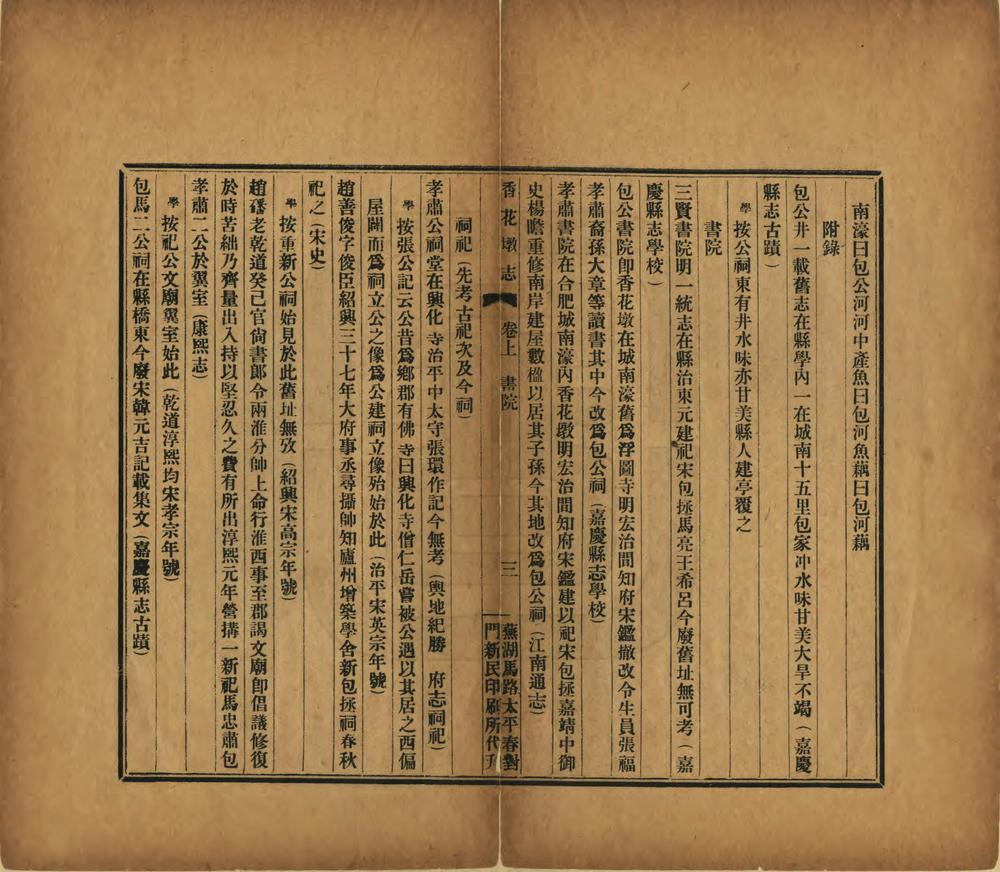 南濠曰包公河河中產魚曰包河魚藕曰包河藕
附錄
包公井一載舊志在縣學內一在城南十五里包家冲水味甘美大旱不竭（嘉慶
縣志古蹟）
學按公祠東有井水味亦甘美縣人建亭覆之
書院
三賢書院明一統志在縣治東元建祀宋包拯馬亮王希呂今廢舊址無可考（嘉
慶縣志學校）
包公書院卽香花墩在城南濠舊爲浮圖寺明宏治間知府宋鑑撤改令生員張福
孝肅裔孫大章等讀書其中今改爲包公祠（嘉慶縣志學校）
孝肅書院在合肥城南濠內香花墩明宏治間知府宋鑑建以祀宋包拯嘉靖中御
史楊瞻重修南岸建屋數楹以居其子孫今其地改爲包公祠（江南通志）
香花墩志 卷上 書院 三
蕪湖馬路太平春對
門新民印刷所代刋
祠祀（先考古祀次及今祠）
孝肅公祠堂在興化寺治平中太守張環作記今無考（輿地紀勝 府志祠祀）
學按張公記云公昔爲鄉郡有佛寺曰興化寺僧仁岳嘗被公遇以其居之西偏
屋闢而爲祠立公之像爲公建祠立像殆始於此（治平宋英宗年號）
趙善俊字俊臣紹興三十七年大府事丞尋攝帥知廬州增築學舍新包拯祠春秋
祀之（宋史）
學按重新公祠始見於此舊址無攷（紹興宋高宗年號）
趙磻老乾道癸己官尙書郎令兩淮分帥上命行淮西事至郡謁文廟卽倡議修復
於時苦絀乃齊量出入持以堅忍久之費有所出淳熙元年營搆一新祀馬忠肅包
孝肅二公於翼室（康熙志）
學按祀公文廟翼室始此（乾道淳熙均宋孝宗年號）
包馬二公祠在縣橋東今廢宋韓元吉記載集文（嘉慶縣志古蹟）